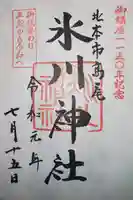 御鎮座一一五〇年記念
北本市高尾
氷川神社
令和元年
七月十五日